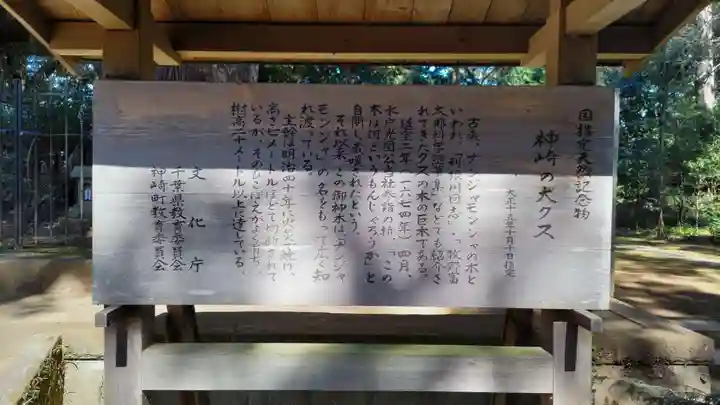 国指定天然記念物
神崎の大クス
大正十五年十月二十日指定
古来、ナンジャモンジャの木と
いわれ、「利根川図志」、「牧野富
太郎科学随筆集」などでも紹介さ
れてきたクスの木の巨木である。
延宝二年（一六七四年）四月、
水戸光圀公当社参詣の折、「この
木は何というもんじゃろうか」と
自問し感嘆されたという。
それ以来、この御神木は「ナンジャ
モンジャ」の名をもって広く知
れ渡っている。
主幹は明治四十年に
高さ七メートルほどで切断されて
いるが、そのひこばえがよく育ち、
樹高二十メートル以上に達している。
文化庁
千葉県教育委員会
神崎町教育委員会